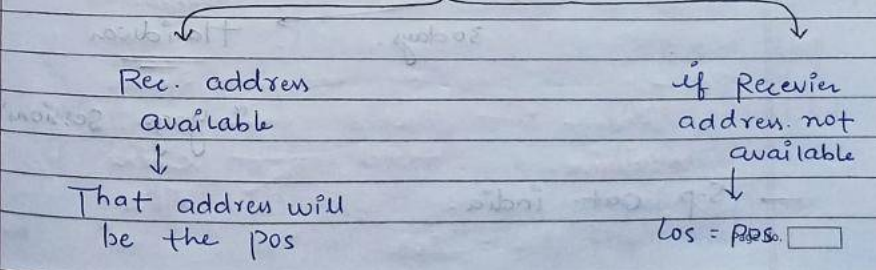 Rec. address
available
↓
That address will
be the pos
if Recevier
address. not
available
↓
Los =